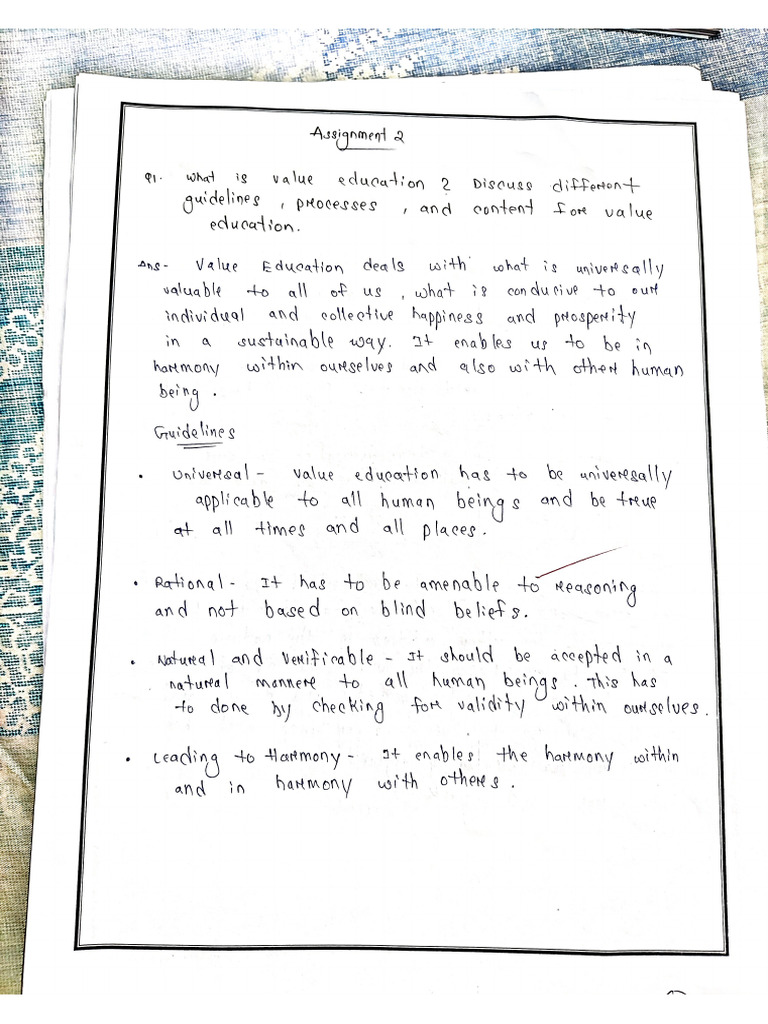 Assignment 2
Q1. What is value education ? Discuss different
guidelines , processes , and content for value
education.
Ans- Value Education deals with what is universally
valuable to all of us , what is conducive to our
individual and collective happiness and prosperity
in a sustainable way. It enables us to be in
harmony within ourselves and also with other human
being .
Guidelines
• Universal - value education has to be universally
applicable to all human beings and be true
at all times and all places.
• Rational - It has to be amenable to reasoning
and not based on blind beliefs.
• Natural and Verificable - It should be accepted in a
natural manner to all human beings . This has
to done by checking for validity within ourselves .
• Leading to Harmony - It enables the harmony within
and in harmony with others .